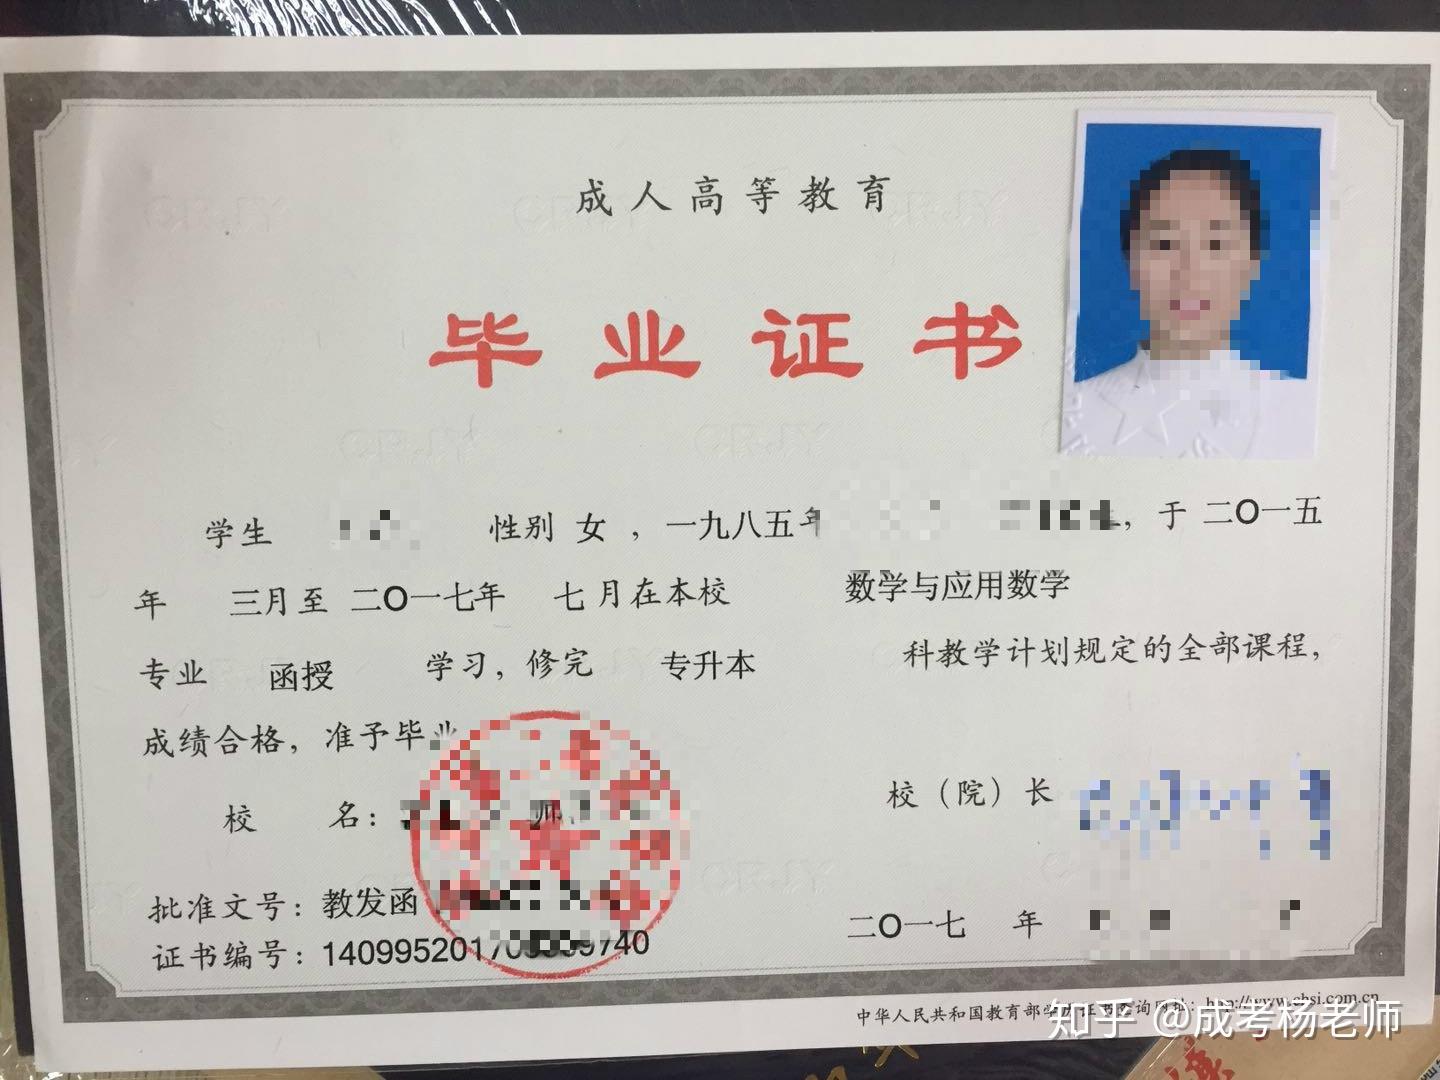 成人高等教育
毕业证书
学生 性别 女 ，一九八五年 ，于 二〇一五
年 三月至 二〇一七年 七月在本校 数学与应用数学
专业 函授 学习，修完 专升本 科教学计划规定的全部课程，
成绩合格，准予毕业
校 名： 师
校（院）长
批准文号：教发函
证书编号：
二〇一七 年
中华人民共和国教育部学历证书查询网址：http://www.chsi.com.cn
知乎 @成考杨老师